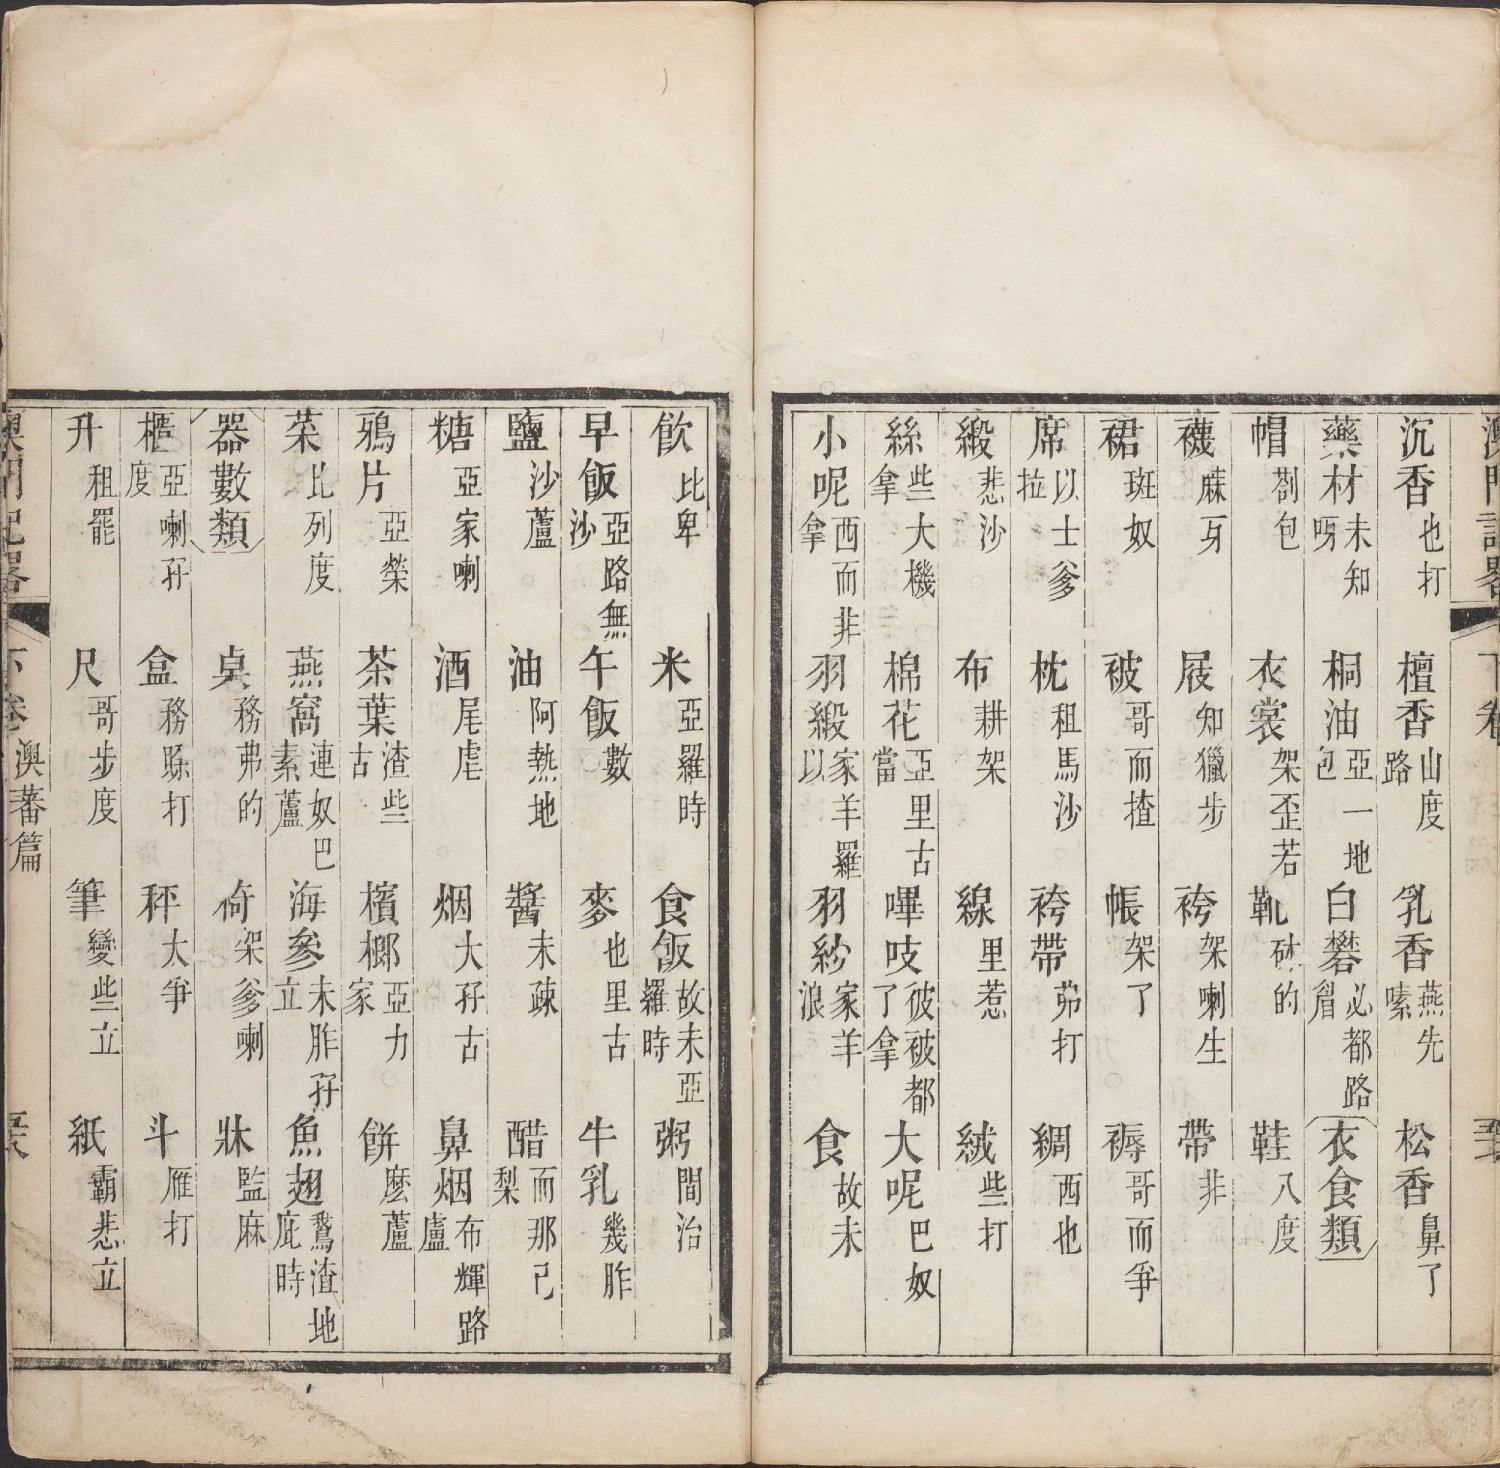 澳門記畧 下卷
沉香 也打 檀香 山度路 乳香 燕先嗉 松香 鼻了
藥材 未知呀 桐油 亞一地包 白礬 必都路眉 衣食類
帽 劄包 衣裳 架歪若 靴 砵的 鞋 八度
襪 麻牙 屐 知獵步 袴 架喇生 帶 非
裙 班奴 被 哥而揸 帳 架了 褥 哥而爭
席 以士爹拉 枕 租馬沙 袴帶 茆打 綢 西也
緞 悲沙 布 耕架 線 里惹 絨 些打
絲 些大機拿 棉花 亞里古當 嗶吱 彼被都了拿 大呢 巴奴
小呢 西而非拿 羽緞 家羊羅以 羽紗 家羊浪 食 故未
飲 比卑 米 亞羅時 食飯 故未亞羅時 粥 間治
早飯 亞路無沙 午飯 數 麥 也里古 牛乳 幾胙
鹽 沙蘆 油 阿熱地 醬 未疎 醋 而那已梨
糖 亞家喇 酒 尾虐 烟 大孖古 鼻烟 布輝路盧
鴉片 亞榮 茶葉 渣些古 檳榔 亞力家 餅 麽蘆
菜 比列度 燕窩 連奴巴素蘆 海參 未胙孖立 魚翅 鵞渣地庇時
器數類 桌 務弗的 倚 架爹喇 牀 監麻
櫃 亞喇孖度 盒 務賒打 秤 大爭 斗 雁打
升 租罷 尺 哥步度 筆 變些立 紙 霸悲立
澳門記畧 下卷 澳蕃篇